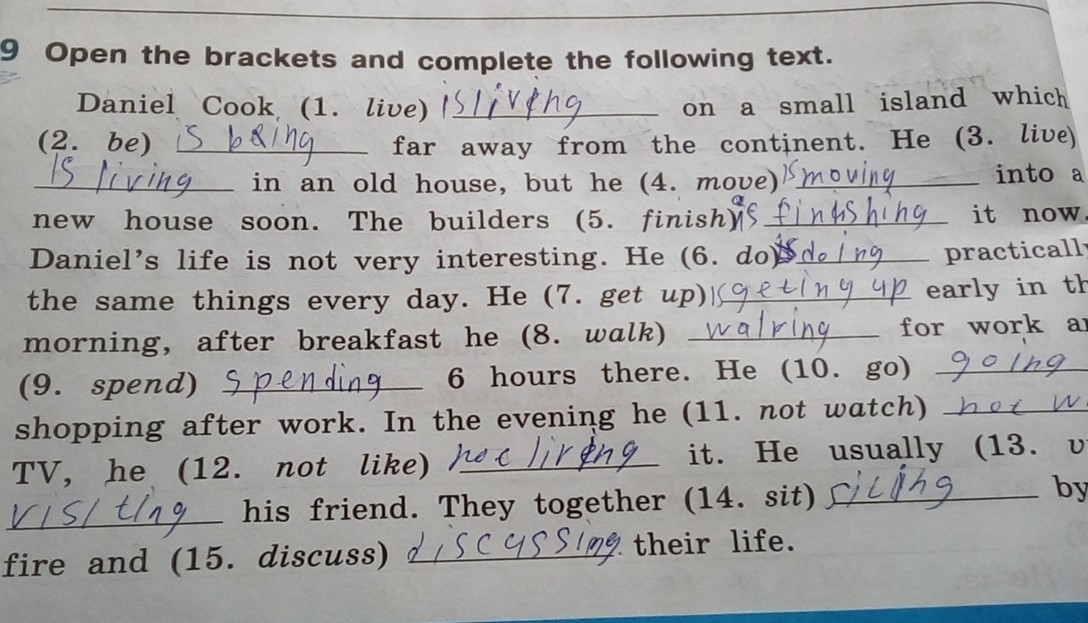 9 Open the brackets and complete the following text.
Daniel Cook (1. live) is living on a small island which
(2. be) is being far away from the continent. He (3. live)
is living in an old house, but he (4. move) is moving into a
new house soon. The builders (5. finish) is finishing it now.
Daniel's life is not very interesting. He (6. do) is doing practically
the same things every day. He (7. get up) is geting up early in th
morning, after breakfast he (8. walk) walking for work an
(9. spend) spending 6 hours there. He (10. go) going
shopping after work. In the evening he (11. not watch) not w
TV, he (12. not like) not living it. He usually (13. v
visiting his friend. They together (14. sit) siting by
fire and (15. discuss) discussing their life.